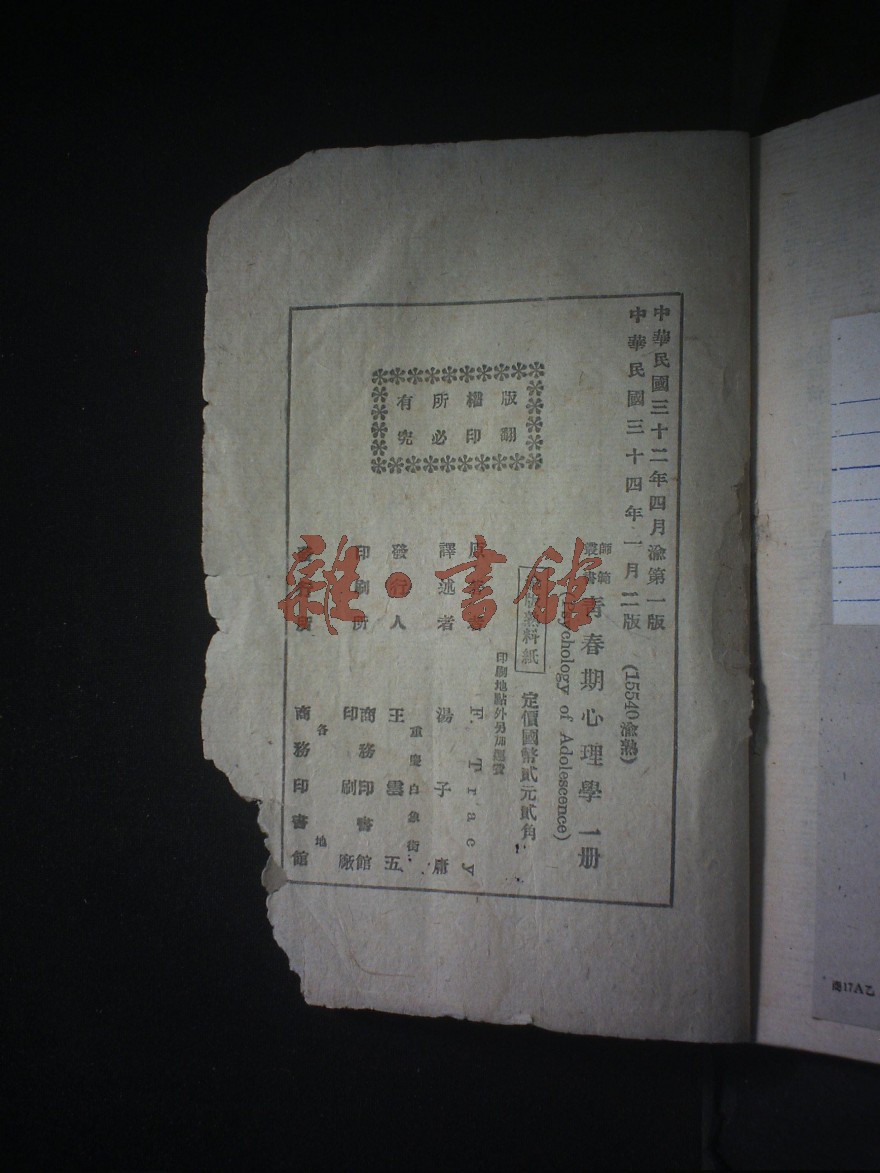 中華民國三十二年四月渝第一版
中華民國三十四年一月二版
(15540渝熟)
師範
叢書
青春期心理學一册
Psychology of Adolescence)
熟料紙
定價國幣貳元貳角
印刷地點外另加運費
版權所有
翻印必究
F. Tracy
譯述者 湯子庸
發行人 王雲五
重慶白象街
印刷所 商務印書館
印刷廠
各地
商務印書館
雜·書館
商17A乙